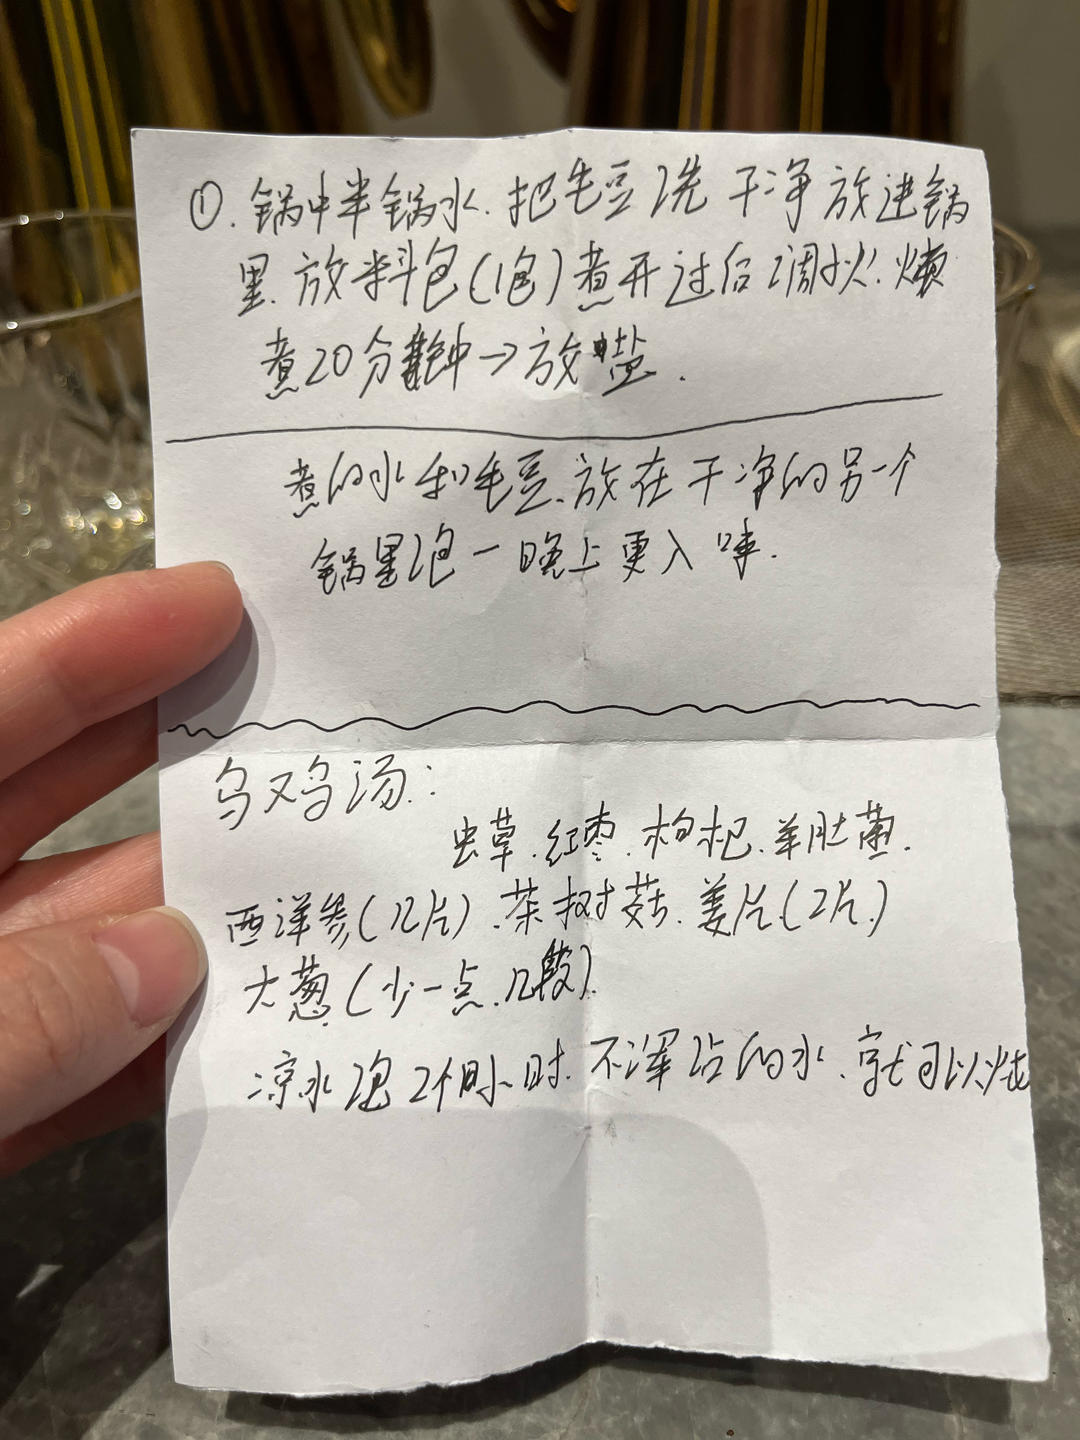 ①.锅中半锅水.把毛豆洗干净放进锅
里.放料包(1包)煮开过后调小火.
煮20分钟→放盐.
煮的水和毛豆.放在干净的另一个
锅里泡一晚上更入味.
乌鸡汤:
虫草.红枣.枸杞.羊肚菌.
西洋参(几片).茶树菇.姜片(2片.)
大葱(少一点.几段)
凉水泡2个小时.不浑浊的水.就可以炖